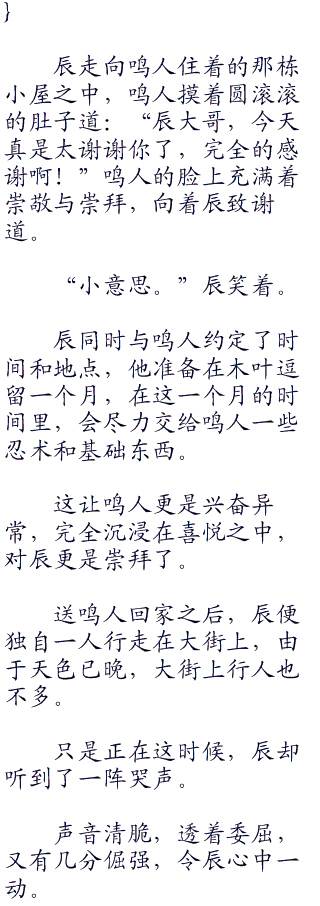 }
辰走向鸣人住着的那栋
小屋之中，鸣人摸着圆滚滚
的肚子道：“辰大哥，今天
真是太谢谢你了，完全的感
谢啊！”鸣人的脸上充满着
崇敬与崇拜，向着辰致谢
道。
“小意思。”辰笑着。
辰同时与鸣人约定了时
间和地点，他准备在木叶逗
留一个月，在这一个月的时
间里，会尽力交给鸣人一些
忍术和基础东西。
这让鸣人更是兴奋异
常，完全沉浸在喜悦之中，
对辰更是崇拜了。
送鸣人回家之后，辰便
独自一人行走在大街上，由
于天色已晚，大街上行人也
不多。
只是正在这时候，辰却
听到了一阵哭声。
声音清脆，透着委屈，
又有几分倔强，令辰心中一
动。